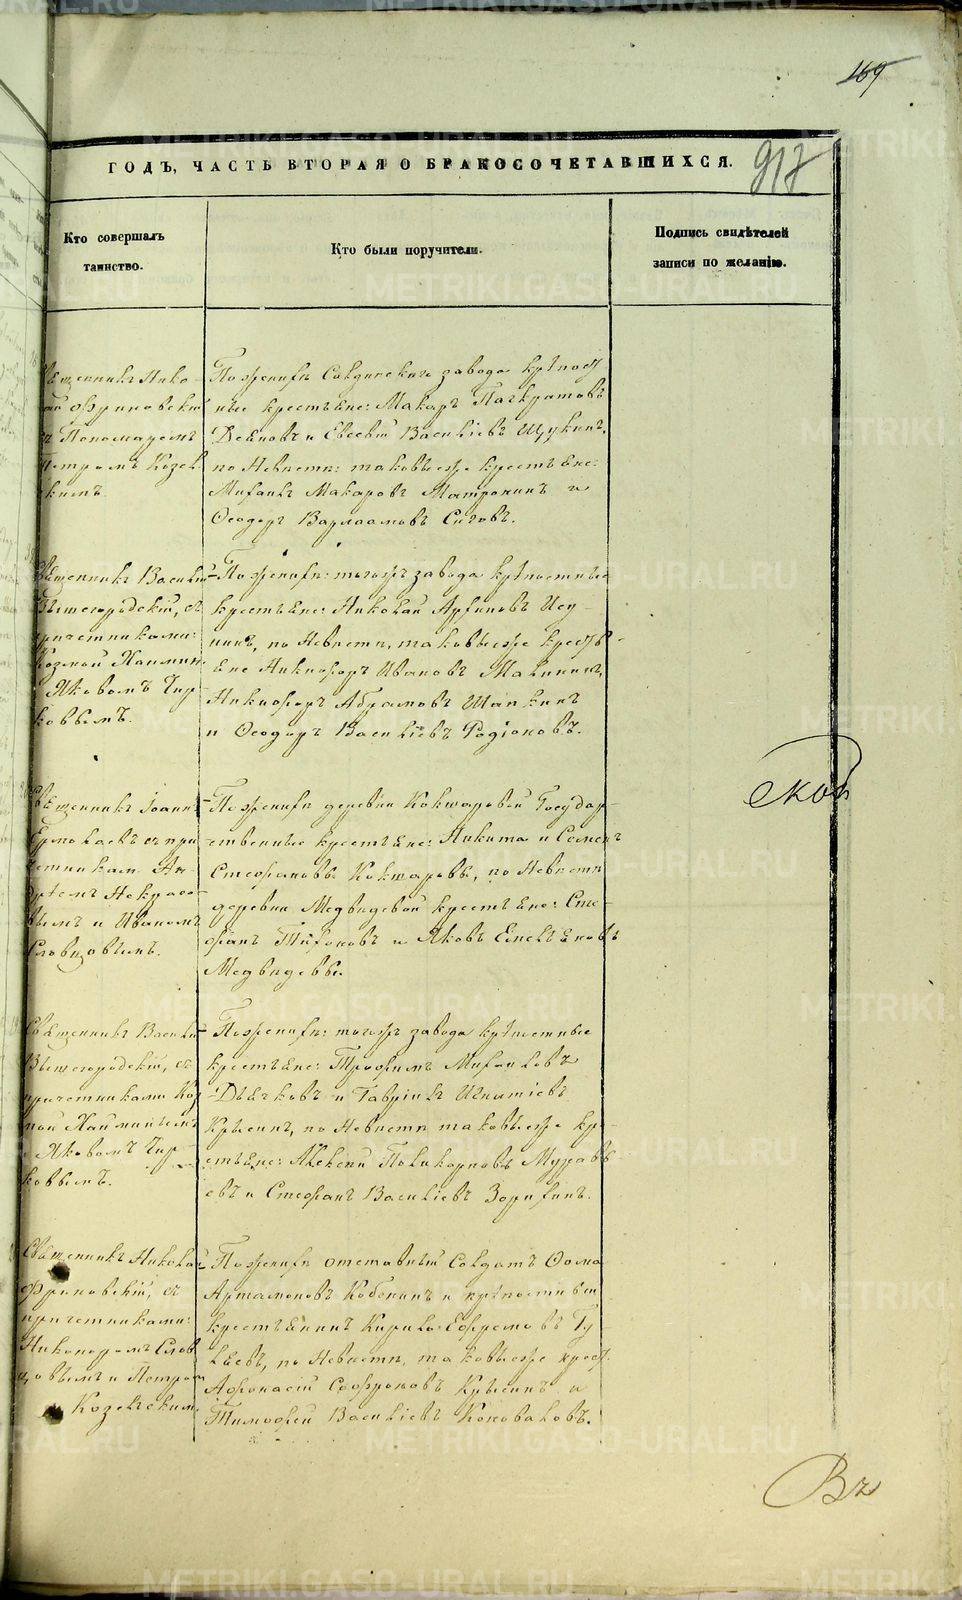 169
ГОДЪ, ЧАСТЬ ВТОРАЯ О БРАКОСОЧЕТАВШИХСЯ.
917
Кто совершалъ
таинство.
Кто были поручители.
Подпись свидѣтелей
записи по желанію.
Священникъ Нико-
лай Фриновскій
съ Пономаремъ
Петромъ Козел
скимъ.
По женихѣ Салдинскаго завода крѣпост
ные крестьяне: Макаръ Панкратовъ
Деяновъ и Евсевій Василіевъ Щукинъ,
по Невѣстѣ: таковыеже крестьяне:
Михаилъ Макаровъ Матронинъ и
Ѳеодоръ Варлаамовъ Сиговъ.
Священникъ Василій
Вышегородскій, съ
причетниками:
Козмой Хамин
Яковомъ Чир
ковымъ.
По женихѣ: тогожъ завода крѣпостные
крестьяне: Николай Архиповъ Ису-
пинъ, по Невѣстѣ, таковыеже кресть-
яне Никифоръ Ивановъ Малининъ,
Никифоръ Абрамовъ Шапкинъ
и Ѳеодоръ Василіевъ Родіоновъ.
Священникъ Іоаннъ
Ермолаевъ съ при
четниками Ан-
дреемъ Некрасо
вымъ и Иваномъ
Словцовымъ.
По женихѣ деревни Кокшаровой Государ
ственные крестьяне: Никита и Семенъ
Стефановы Кокшаровы, по Невѣстѣ
деревни Медвѣдевой крестьяне: Сте-
фанъ Тихоновъ и Яковъ Емельяновъ
Медвѣдевы.
скоб
Священникъ Василій
Вышегородскій, съ
причетниками Коз
мой Хаминымъ
Яковомъ Чир-
ковымъ.
По женихѣ: тогожъ завода крѣпостные
крестьяне: Трофимъ Михаиловъ
Дьячковъ и Гавріилъ Игнатіевъ
Крысинъ, по Невѣстѣ таковыеже кре-
стьяне: Алексѣй Поликарповъ Муравь
евъ и Стефанъ Василіевъ Зорихинъ.
Священникъ Николай
Фриновскій, съ
причетниками:
Никифоромъ Слов
цовымъ и Петром
Козельским.
По женихѣ отставный Солдатъ Ѳома
Артамоновъ Кобенинъ и крѣпостный
крестьянинъ Кирило Ефремовъ Гу
ляевъ, по Невѣстѣ, таковыеже крест.
Афонасій Софроновъ Крысинъ и
Тимофей Василіевъ Коноваловъ.
Въ
METRIKI.GASO-URAL.RU